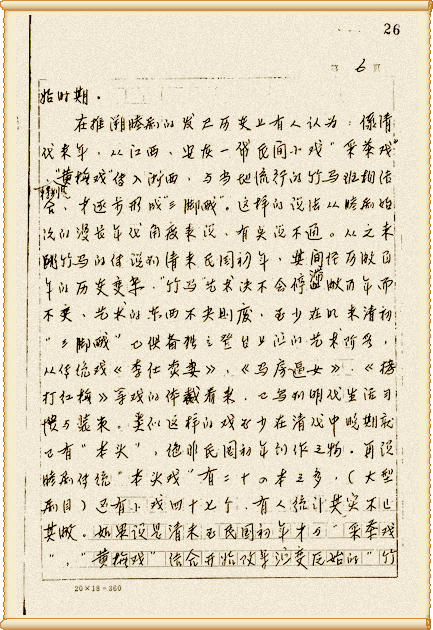 26
第 6 页
始时期。
在推溯睦剧的发展历史上有人认为：系清
代末年，从江西、安庆一带民间小戏“采茶戏”
“黄梅戏”传入浙西，与当地流行的竹马班相结
合，才逐步形成“三脚戏”。这样的说法从睦剧始
说的漫长年代角度来说，有矣说不通。从元末
跳竹马的传说到清末民国初年，其间经历数百
年的历史变革，“竹马”艺术决不会停滞数百年而
不变，艺术的东西不央则废，至少在明末清初
“三脚戏”已供备推之登台上演的艺术阶务，
从传统戏《李仕卖妻》、《马房逼女》、《搭
打红梅》等戏的伴载看来，已与明代生活习
惯与装束。类似这样的戏至少在清代中晚期就
已有“本头”，绝非民国初年创作之物。再说
睦剧传统“本头戏”有二十の本之多，（大型
剧目）还有小戏四十七个，有人统计其实不止
其数。如果说是清末至民国初年才与“采茶戏
”、“黄梅戏”结合开始改革演变原始的“竹
20×18=360